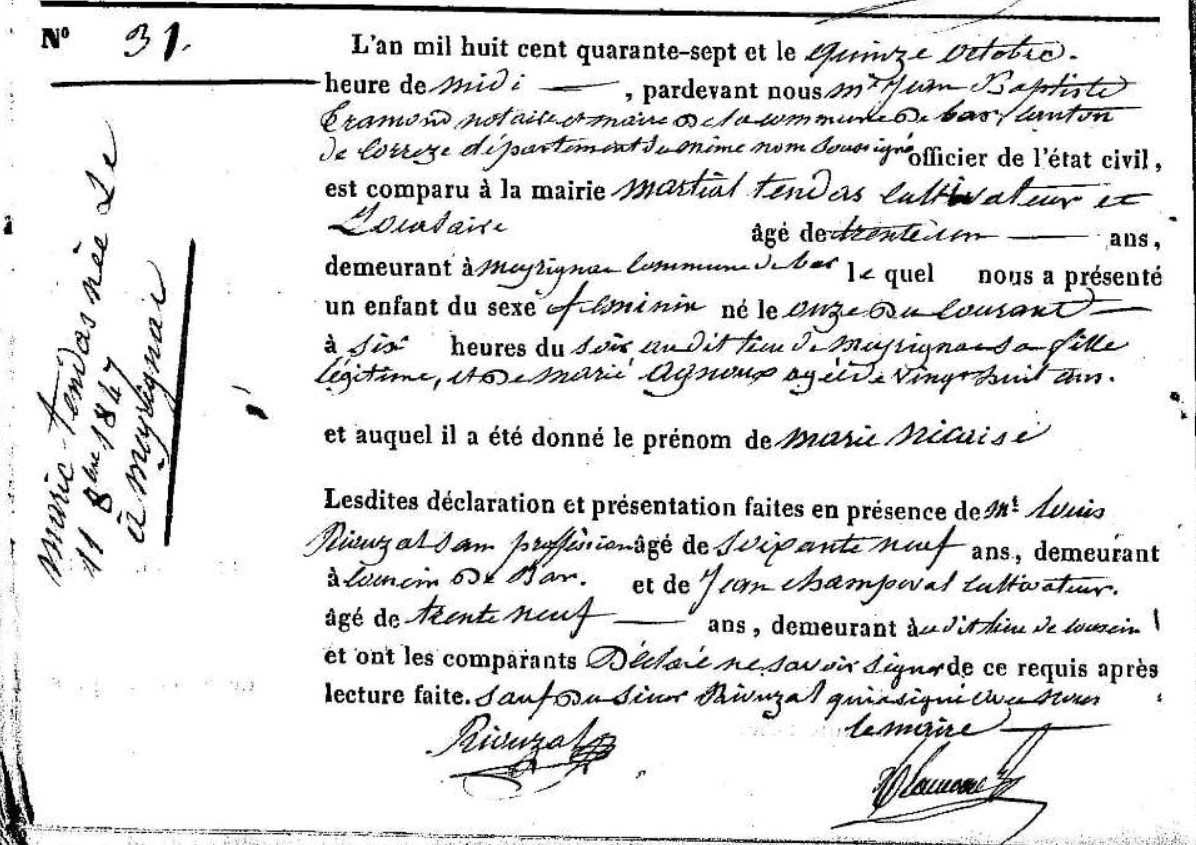 N° 31.
marie tendas née Le
11 8bre 1847
à meyrignac
L'an mil huit cent quarante-sept et le quinze octobre.
heure de midi — , pardevant nous mr Jean Baptiste
Tramond notaire et maire de la commune de bar, canton
de Correze département du même nom soussigné officier de l'état civil,
est comparu à la mairie martial tendas cultivateur et
âgé de trente un — ans,
demeurant à meyrignac commune de bar le quel nous a présenté
un enfant du sexe féminin né le onze du courant —
à six heures du soir audit lieu de meyrignac sa fille
légitime, et de marie Agnoux agée de vingt huit ans.
et auquel il a été donné le prénom de marie Nicaise
Lesdites déclaration et présentation faites en présence de Mr Louis
Rivuzal sans proffession âgé de soixante neuf ans, demeurant
à de Bar. et de Jean champeval cultivateur.
âgé de trente neuf — ans, demeurant à audit lieu de
et ont les comparants Déclaré ne savoir signer de ce requis après
lecture faite. sauf du sieur Rivuzal qui a signé avec nous
le maire —
Rivuzal